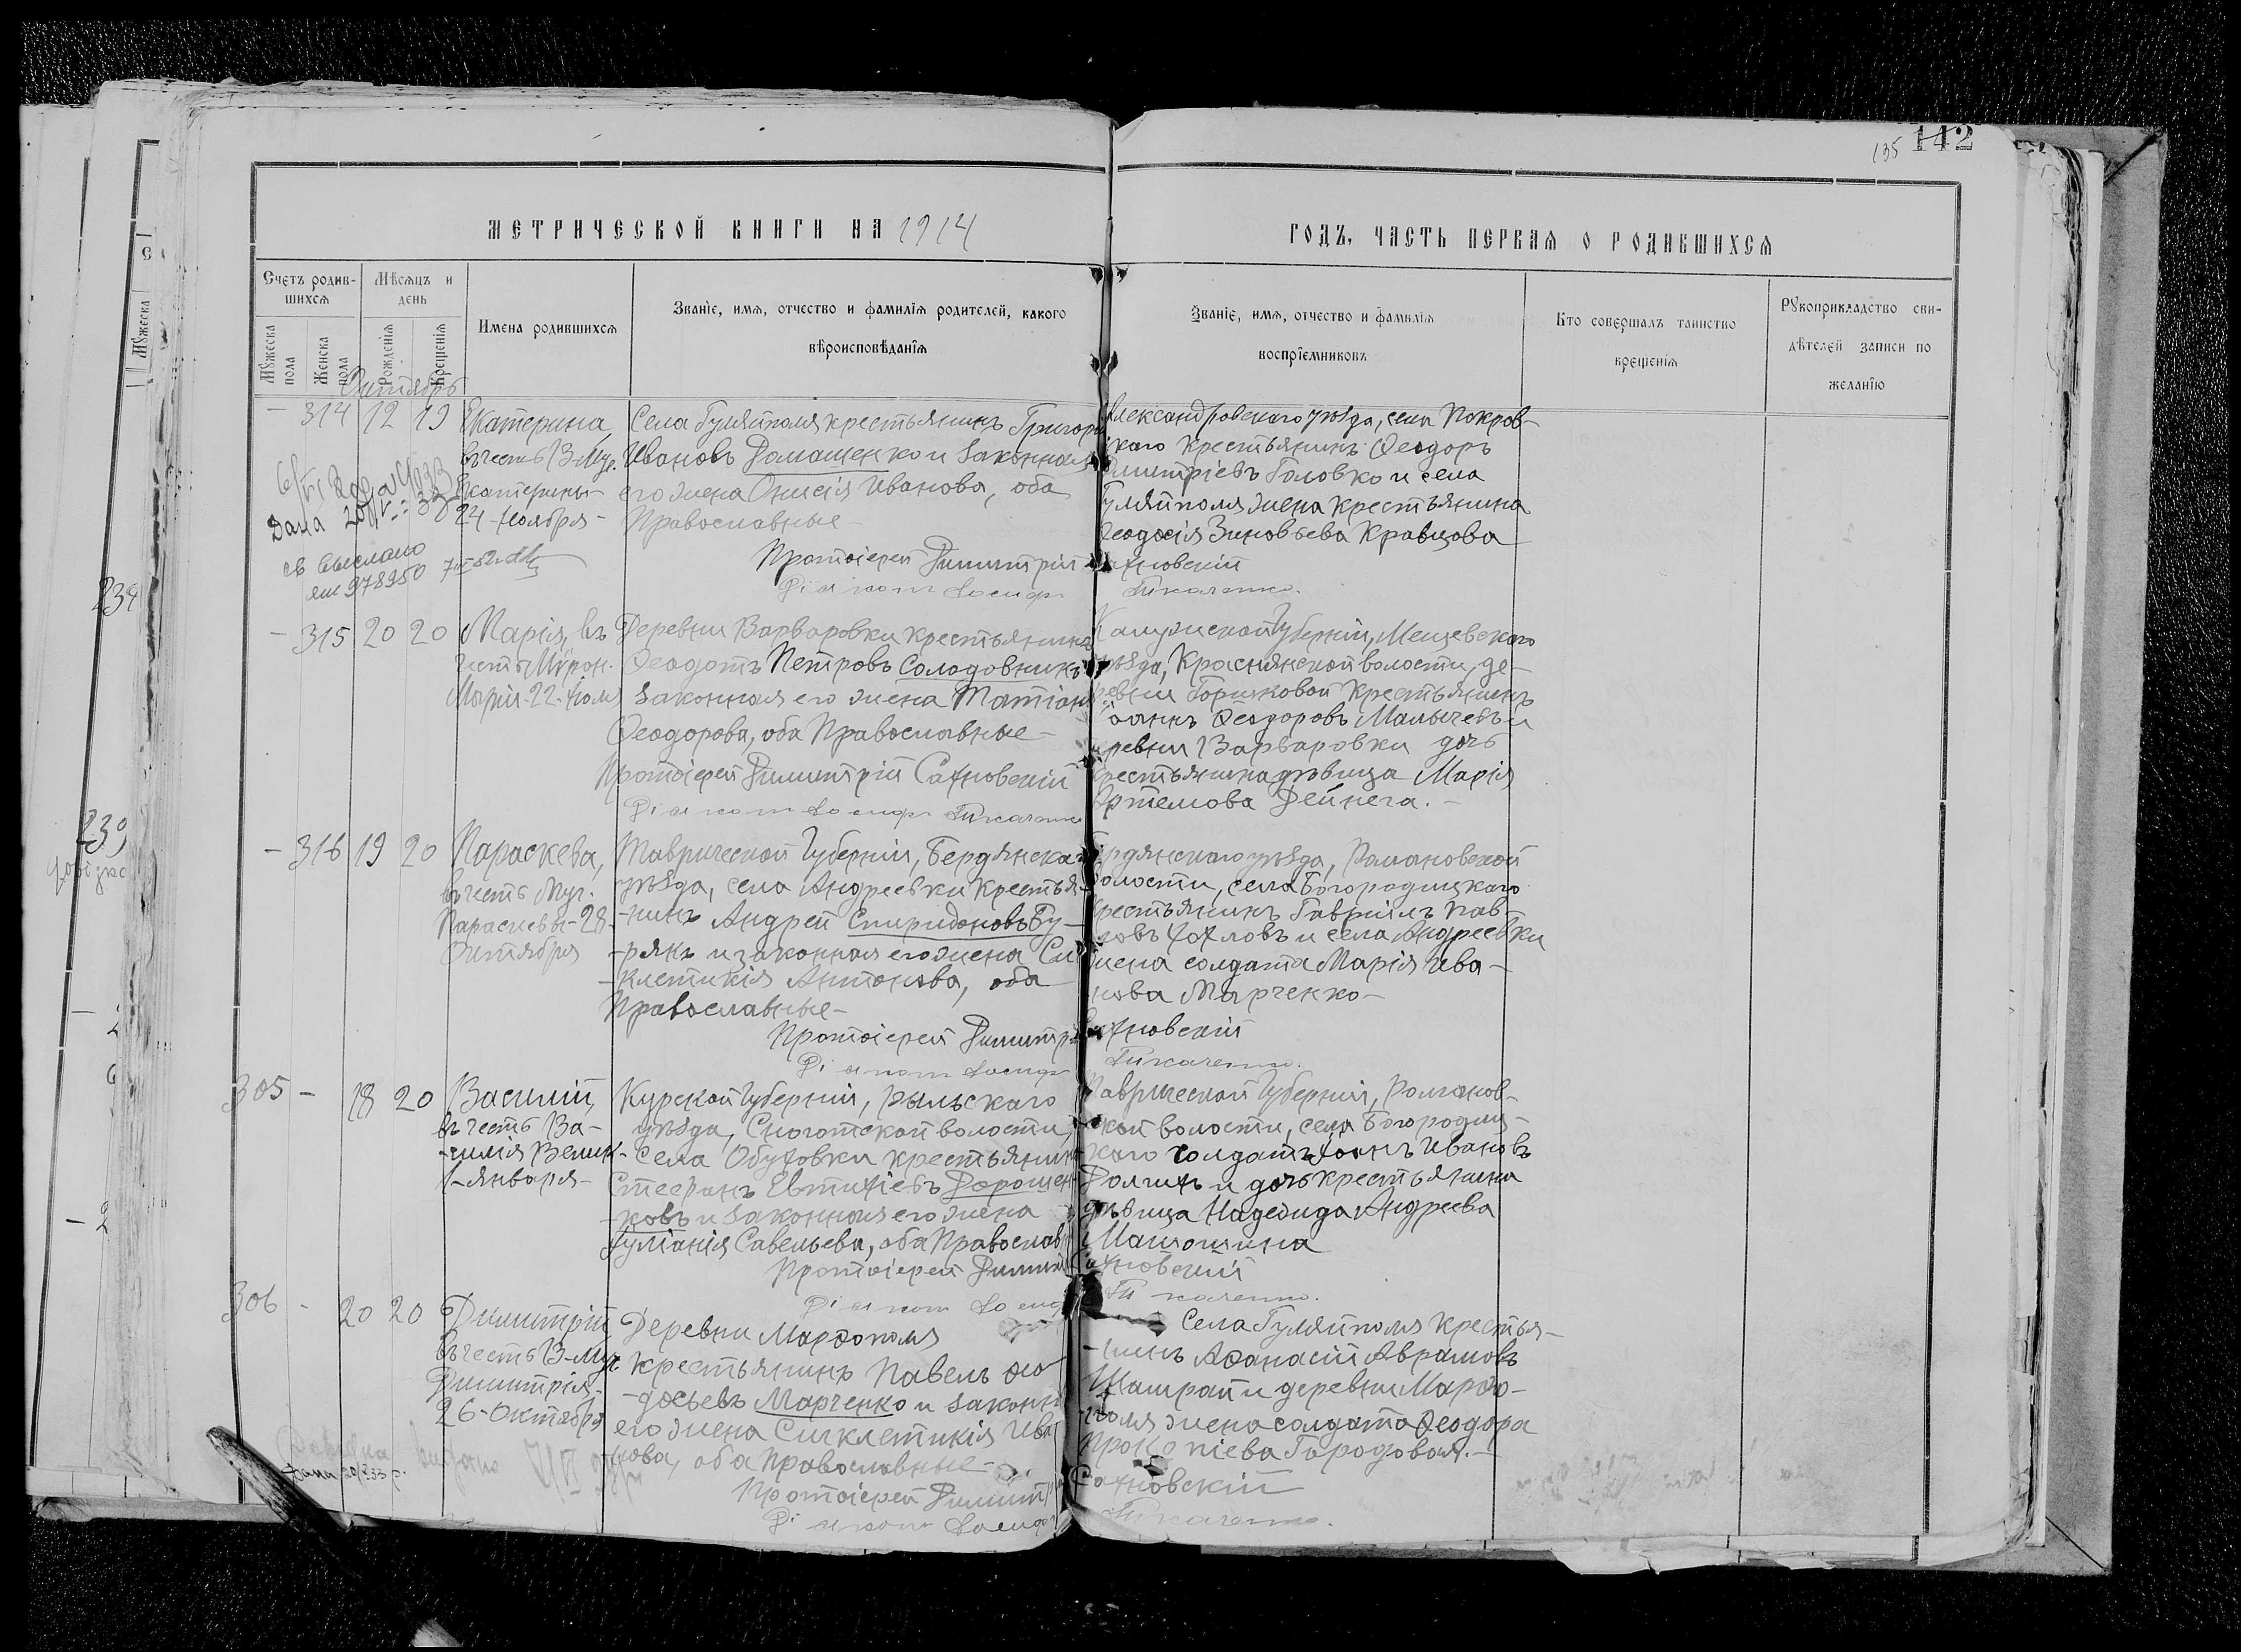 135 142
МЕТРИЧЕСКОЙ КНИГИ НА 1914
ГОДЪ, ЧАСТЬ ПЕРВАЯ О РОДИВШИХСЯ
Счетъ родив-
шихся
Мужеска
пола
Женска
пола
Мѣсяцъ и
день
Рожденія
Крещенія
Имена родившихся
Званіе, имя, отчество и фамилія родителей, какого
вѣроисповѣданія
Званіе, имя, отчество и фамилія
воспріемниковъ
Кто совершалъ таинство
крещенія
Рукоприкладство сви-
дѣтелей записи по
желанію
Октябрь
- 314 12 19
Екатерина,
въ честь В-Муч.
Екатерины-
24 Ноября-
Села Гуляйполя крестьянинъ Григорій
Ивановъ Домашенко и законная
его жена Онисія Иванова, оба
Православные-
Александровскаго уѣзда, села Покров-
скаго крестьянинъ Ѳеодоръ
Димитріевъ Головко и села
Гуляйполя жена крестьянина
Ѳеодосія Зиновьева Кравцова
Протоіерей Димитрій Сахновскій
Ткаченко.
Дана
св выслано
978950
- 315 20 20
Марія, въ
честь Мѵрон.
Маріи-22-Іюля
Деревни Варваровки крестьянинъ
Ѳеодотъ Петровъ Солодовникъ и
законная его жена Татіана
Ѳеодорова, оба Православные-
Протоіерей Димитрій Сахновскій
Ткаченко
Калужской Губерніи, Мещевскаго
уѣзда, Краснянской волости, де-
ревни Горшковой крестьянинъ
Іоаннъ Ѳеодоровъ Малычевъ и
деревни Варваровки дочь
крестьянина дѣвица Марія
Артемова Дейнега.-
- 316 19 20
Параскева,
въ честь Муч.
Параскевы-28
Октября
Таврической Губерніи, Бердянскаго
уѣзда, села Андреевки крестья-
-нинъ Андрей Спиридоновъ Бу-
-рякъ и законная его жена Син-
-клетикія Антонова, оба
Православные-
Бердянскаго уѣзда, Романовской
волости, села Богородицкаго
крестьянинъ Гавріилъ Пав-
ловъ Хохловъ и села Андреевки
жена солдата Марія Ива-
нова Марченко-
Протоіерей Димитрій Сахновскій
Ткаченко.
305 - 18 20
Василій,
въ честь Ва-
-силія Велик.-
1-Января-
Курской Губерніи, Рыльскаго
уѣзда, Сноготской волости,
села Обуховки крестьянинъ
Стефанъ Евтихіевъ Дорошен-
-ковъ и законная его жена
Іуліанія Савельева, оба Православн.
Таврической Губерніи, Романов-
-ской волости, села Богородиц-
-каго солдатъ Іоаннъ Ивановъ
Долгихъ и дочь крестьянина
дѣвица Надежда Андреева
Матюшина
Протоіерей Димитрій Сахновскій
Ткаченко.
306 - 20 20
Димитрій,
въ честь В-Муч.
Димитрія-
26-Октября
Деревни Марфополя
крестьянинъ Павелъ Ѳео-
-досьевъ Марченко и законная
его жена Синклетикія Ива-
нова, оба Православные-
Села Гуляйполя крестья-
-нинъ Аѳанасій Аврамовъ
Шамрай и деревни Марфо-
-поля жена солдата Ѳеодора
Прокопіева Городовая.-
Протоіерей Димитрій Сахновскій
Ткаченко.
239